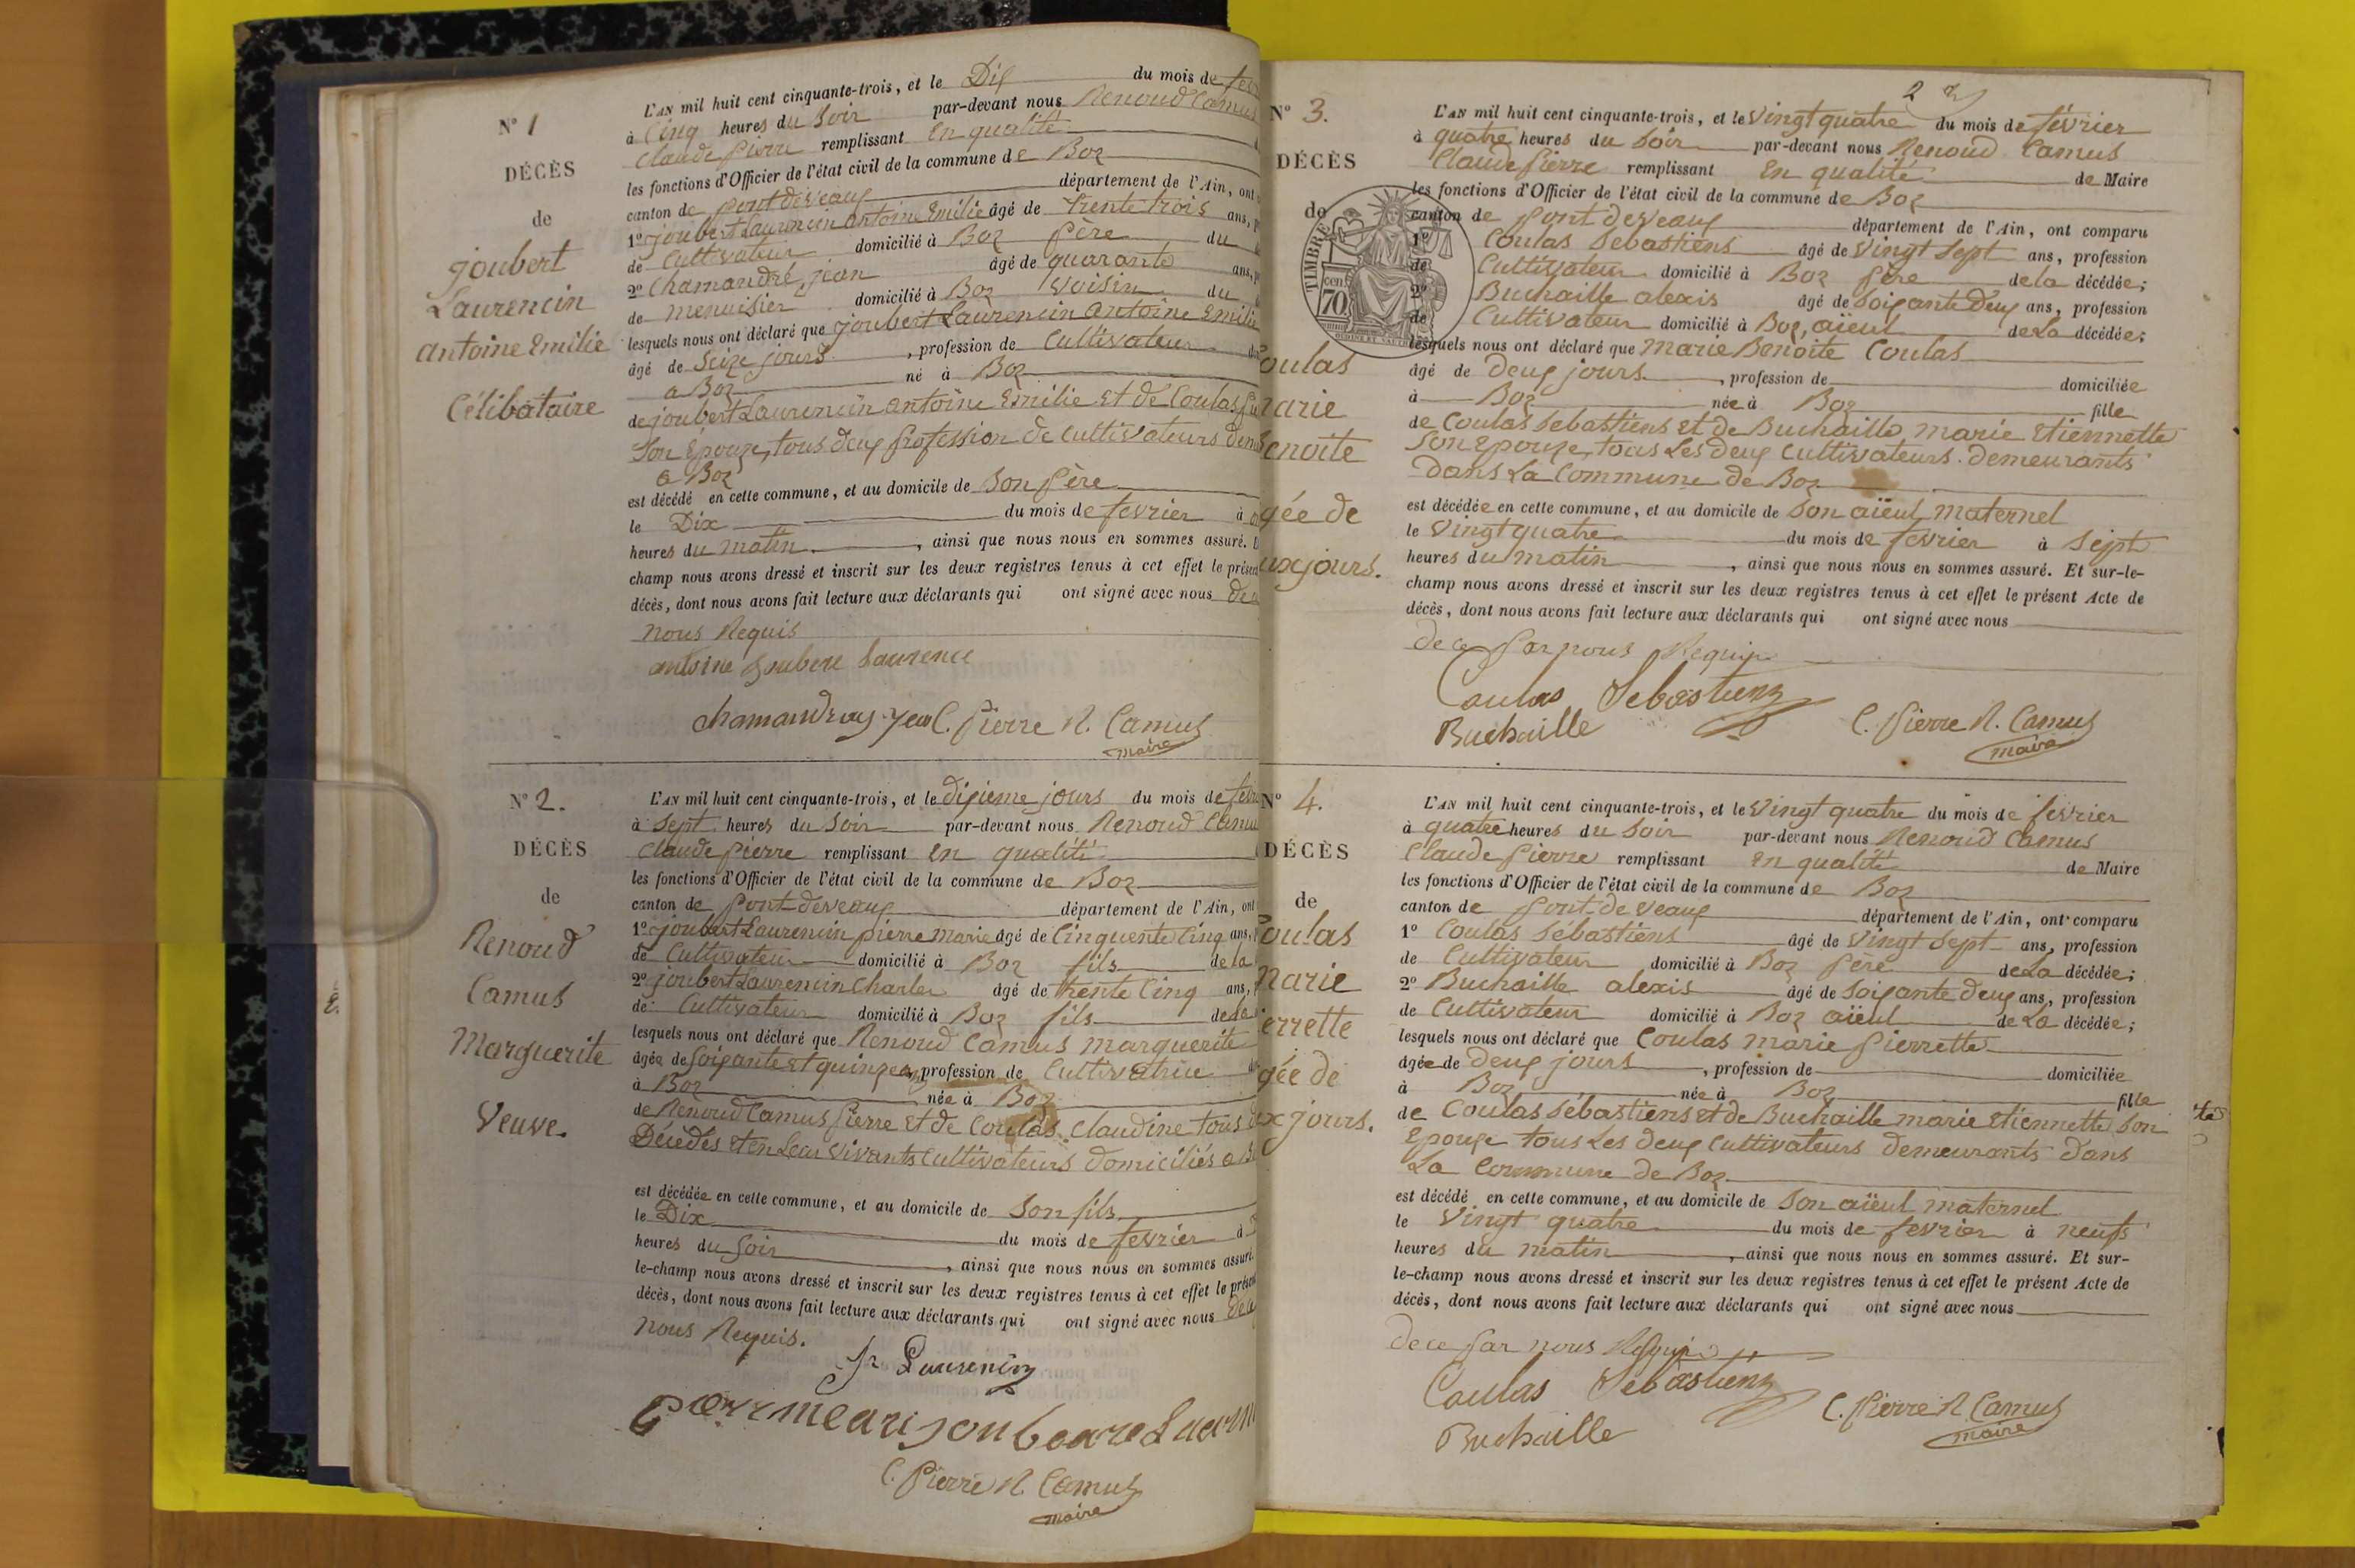 N° 1
DÉCÈS
de
joubert
Laurencin
antoine Emilie
Célibataire
L'AN mil huit cent cinquante-trois, et le Dix du mois de
à Cinq heures du Soir par-devant nous Renoud Camus
Claude pierre remplissant En qualité
les fonctions d'Officier de l'état civil de la commune de Boz
canton de pont deveaux département de l'Ain, ont
1° joubert Laurencin antoine Emilie âgé de trente trois ans,
de Cultivateur domicilié à Boz père du
2° Chamandré, jean âgé de quarante ans,
de menuisier domicilié à Boz Voisin du
lesquels nous ont déclaré que joubert Laurencin antoine Emilie
âgé de Seize jours, profession de Cultivateur
a Boz né à Boz
de joubert Laurencin antoine Emilie et de Coulas
Son Epouze, tous deux profession de cultivateurs
a Boz
est décédé en cette commune, et au domicile de Son père
le Dix du mois de fevrier à
heures du matin, ainsi que nous nous en sommes assuré.
champ nous avons dressé et inscrit sur les deux registres tenus à cet effet le présent
décès, dont nous avons fait lecture aux déclarants qui ont signé avec nous
nous Requis
antoine Joubere Laurence
C. Pierre R. Camus
maire
N° 2.
DÉCÈS
de
Renoud
Camus
Marguerite
Veuve.
L'AN mil huit cent cinquante-trois, et le dixieme jours du mois de
à Sept heures du Soir par-devant nous Renoud Camu
Claude pierre remplissant En qualité
les fonctions d'Officier de l'état civil de la commune de Boz
canton de pont-deveaux département de l'Ain, ont
1° joubert Laurencin pierre marie âgé de Cinquente Cinq ans,
de Cultivateur domicilié à Boz fils de la
2° joubert Laurencin Charles âgé de trente Cinq ans,
de Cultivateur domicilié à Boz fils de la
lesquels nous ont déclaré que Renoud Camus marguerite
âgée de Soixante et quinze ans, profession de Cultivatrice
à Boz née à Boz
de Renoud Camus pierre et de Coulas Claudine tous
Décédés et en Leur vivants Cultivateurs domiciliés a
est décédée en cette commune, et au domicile de Son fils
le Dix du mois de fevrier à
heures du Soir, ainsi que nous nous en sommes assuré.
le-champ nous avons dressé et inscrit sur les deux registres tenus à cet effet le présent
décès, dont nous avons fait lecture aux déclarants qui ont signé avec nous
nous Requis.
C. Pierre R Camus
maire
2
N° 3.
DÉCÈS
de
TIMBRE
70 cent
oulas
marie
enoite
gée de
uxjours.
L'AN mil huit cent cinquante-trois, et le Vingt quatre du mois de février
à quatre heures du Soir par-devant nous Renoud Camus
Claude pierre remplissant En qualité de Maire
les fonctions d'Officier de l'état civil de la commune de Boz
canton de pont deveaux département de l'Ain, ont comparu
1° Coulas Sebastiens âgé de Vingt Sept ans, profession
de Cultivateur domicilié à Boz père de la décédée;
2° Buchaille alexis âgé de Soixante Deux ans, profession
de Cultivateur domicilié à Boz, aïeul de La décédée;
lesquels nous ont déclaré que Marie Benoite Coulas
âgé de Deux jours, profession de domiciliée
à Boz née à Boz fille
de Coulas Sebastiens et de Buchaille marie Etiennette
Son Epouze, tous Les deux Cultivateurs demeurants
dans La Commune de Boz
est décédée en cette commune, et au domicile de Son aïeul maternel
le Vingt quatre du mois de fevrier à Sept
heures du matin, ainsi que nous nous en sommes assuré. Et sur-le-
champ nous avons dressé et inscrit sur les deux registres tenus à cet effet le présent Acte de
décès, dont nous avons fait lecture aux déclarants qui ont signé avec nous
de ce par nous Requis
Coulas Sebastienz
Buchaille
C. Pierre R. Camus
maire
N° 4.
DÉCÈS
de
oulas
marie
errette
gée de
ux jours.
L'AN mil huit cent cinquante-trois, et le Vingt quatre du mois de fevrier
à quatre heures du Soir par-devant nous Renoud Camus
Claude pierre remplissant En qualité de Maire
les fonctions d'Officier de l'état civil de la commune de Boz
canton de pont-de veaux département de l'Ain, ont comparu
1° Coulas Sébastiens âgé de Vingt Sept ans, profession
de Cultivateur domicilié à Boz père de La décédée;
2° Buchaille alexis âgé de Soixante deux ans, profession
de Cultivateur domicilié à Boz aïeul de La décédée;
lesquels nous ont déclaré que Coulas marie pierrette
âgée de Deux jours, profession de domiciliée
à Boz née à Boz fille
de Coulas Sébastiens et de Buchaille marie Etiennette Son
Epouze tous Les deux Cultivateurs demeurants dans
La Commune de Boz
est décédé en cette commune, et au domicile de Son aïeul maternel
le Vingt quatre du mois de fevrier à neufs
heures du matin, ainsi que nous nous en sommes assuré. Et sur-
le-champ nous avons dressé et inscrit sur les deux registres tenus à cet effet le présent Acte de
décès, dont nous avons fait lecture aux déclarants qui ont signé avec nous
de ce par nous Requis
Coulas Sébastienz
Buchaille
C. Pierre R Camus
maire